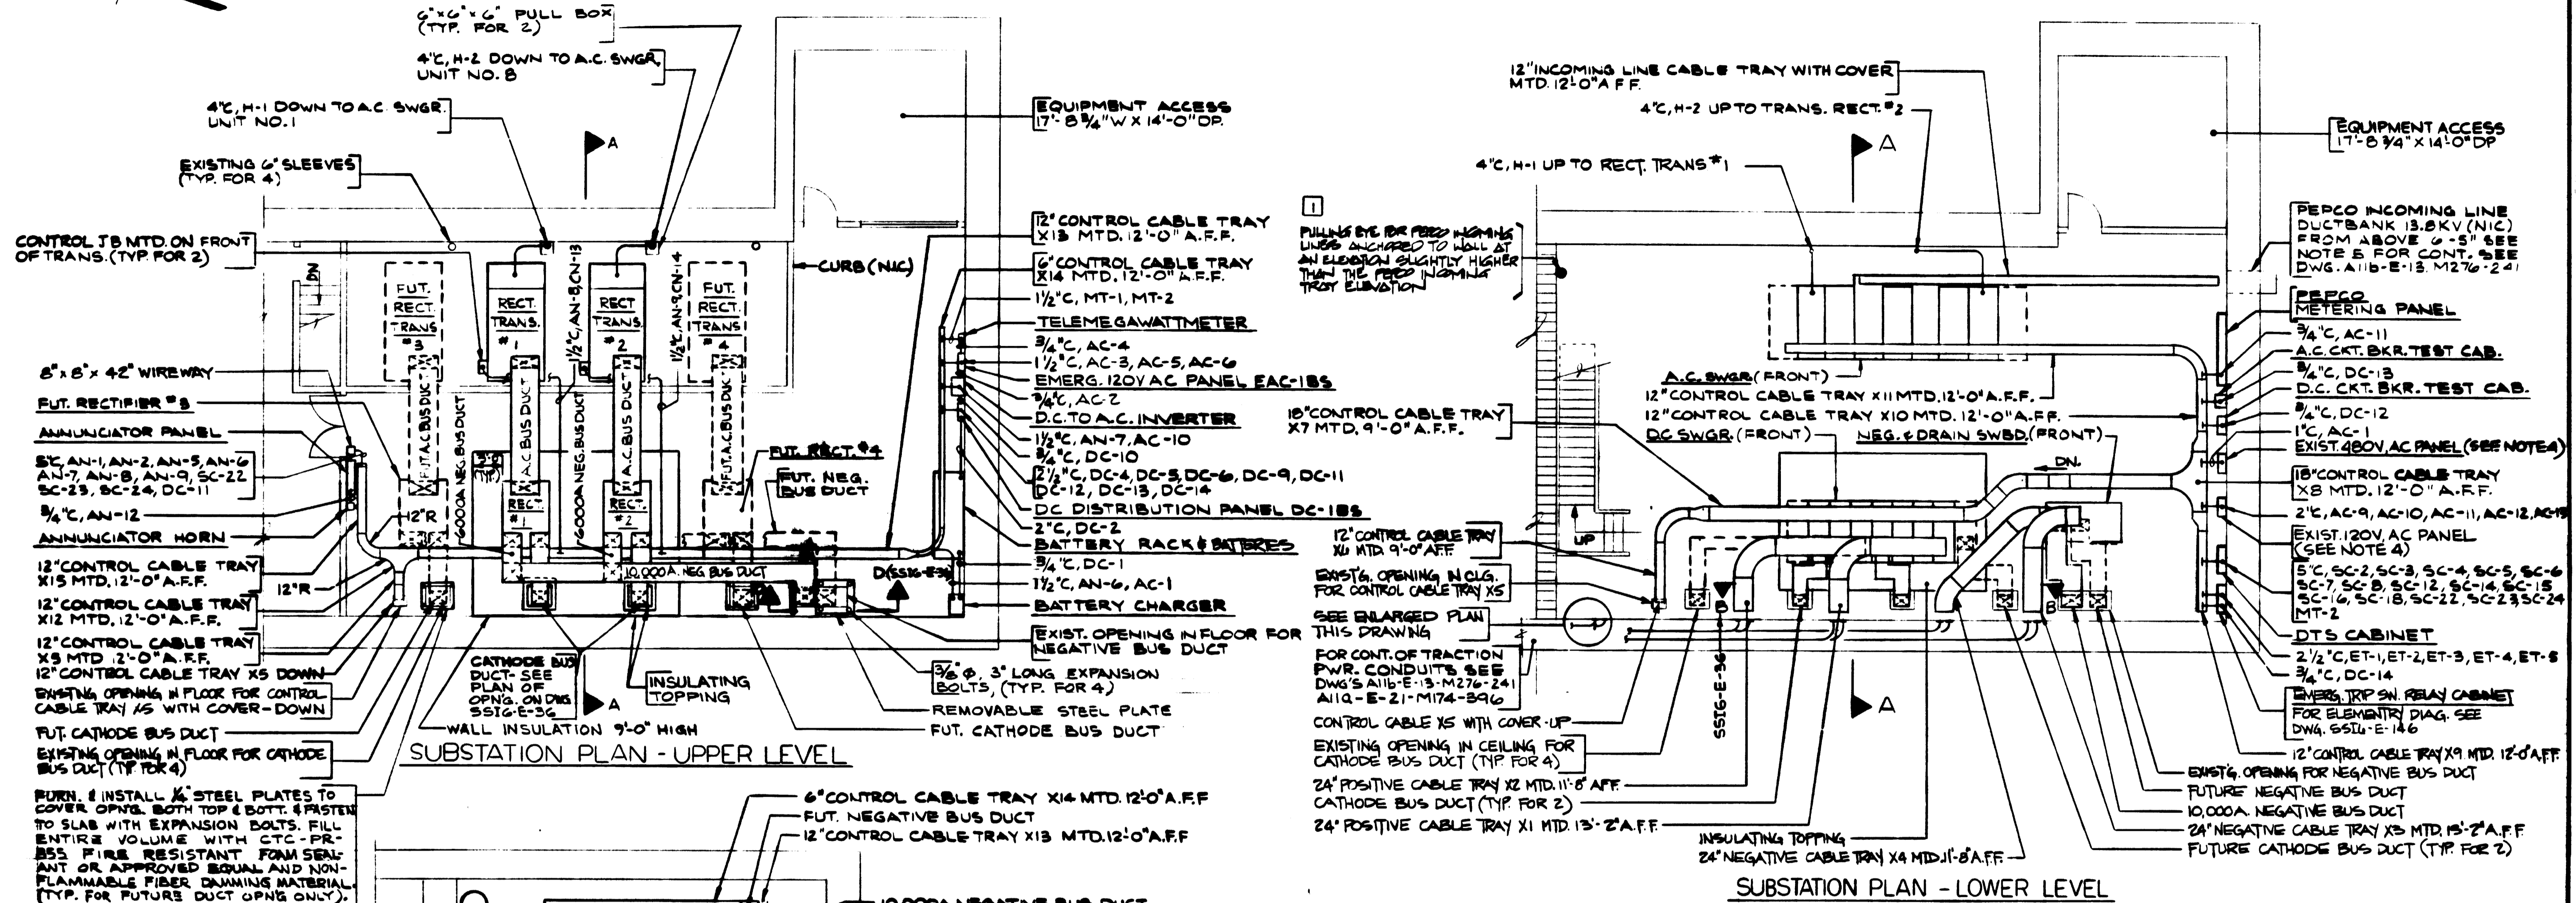 6"x6"x6" PULL BOX
(TYP. FOR 2)
4"C, H-2 DOWN TO A.C. SWGR.
UNIT NO. 8
4"C, H-1 DOWN TO A.C. SWGR.
UNIT NO. 1
EXISTING 6" SLEEVES
(TYP. FOR 4)
CONTROL JB MTD. ON FRONT
OF TRANS. (TYP. FOR 2)
A
EQUIPMENT ACCESS
17'-8 3/4" W X 14'-0" DP.
CURB (NIC)
DN
FUT.
RECT.
TRANS
#3
RECT.
TRANS.
#1
RECT.
TRANS.
#2
FUT.
RECT.
TRANS
#4
1 1/2"C, AN-8, CN-13
1 1/2"C, AN-9, CN-14
FUT. A.C. BUS DUCT
6000A NEG. BUS DUCT
A.C. BUS DUCT
6000A NEG. BUS DUCT
A.C. BUS DUCT
FUT. A.C. BUS DUCT
RECT.
#1
RECT.
#2
FUT. RECT. #4
FUT. NEG.
BUS DUCT
10,000 A. NEG BUS DUCT
8"x8"x42" WIREWAY
FUT. RECTIFIER #3
ANNUNCIATOR PANEL
5"C, AN-1, AN-2, AN-5, AN-6
AN-7, AN-8, AN-9, SC-22
SC-23, SC-24, DC-11
3/4"C, AN-12
ANNUNCIATOR HORN
12"R
12"R
12" CONTROL CABLE TRAY
X15 MTD. 12'-0" A.F.F.
12" CONTROL CABLE TRAY
X12 MTD. 12'-0" A.F.F.
12" CONTROL CABLE TRAY
X5 MTD 12'-0" A.F.F.
12" CONTROL CABLE TRAY X5 DOWN
EXISTING OPENING IN FLOOR FOR CONTROL
CABLE TRAY X5 WITH COVER-DOWN
FUT. CATHODE BUS DUCT
EXISTING OPENING IN FLOOR FOR CATHODE
BUS DUCT (TYP. FOR 4)
FURN. & INSTALL 1/4" STEEL PLATES TO
COVER OPNG. BOTH TOP & BOTT. & FASTEN
TO SLAB WITH EXPANSION BOLTS. FILL
ENTIRE VOLUME WITH CTC-PR-
855 FIRE RESISTANT FOAM SEAL-
ANT OR APPROVED EQUAL AND NON-
FLAMMABLE FIBER DAMMING MATERIAL.
(TYP. FOR FUTURE DUCT OPNG ONLY).
12" CONTROL CABLE TRAY
X13 MTD. 12'-0" A.F.F.
6" CONTROL CABLE TRAY
X14 MTD. 12'-0" A.F.F.
1 1/2"C, MT-1, MT-2
TELEMEGAWATTMETER
3/4"C, AC-4
1 1/2"C, AC-3, AC-5, AC-6
EMERG. 120V AC PANEL EAC-1BS
3/4"C, AC-2
D.C. TO A.C. INVERTER
1 1/2"C, AN-7, AC-10
3/4"C, DC-10
2 1/2"C, DC-4, DC-5, DC-6, DC-9, DC-11
DC-12, DC-13, DC-14
DC DISTRIBUTION PANEL DC-1BS
2"C, DC-2
BATTERY RACK & BATTERIES
3/4"C, DC-1
1 1/2"C, AN-6, AC-1
BATTERY CHARGER
EXIST. OPENING IN FLOOR FOR
NEGATIVE BUS DUCT
3/8" φ, 3" LONG EXPANSION
BOLTS, (TYP. FOR 4)
REMOVABLE STEEL PLATE
FUT. CATHODE BUS DUCT
CATHODE BUS
DUCT- SEE
PLAN OF
OPNG. ON DWG
SSI6-E-36
A
INSULATING
TOPPING
WALL INSULATION 9'-0" HIGH
SUBSTATION PLAN - UPPER LEVEL
6" CONTROL CABLE TRAY X14 MTD. 12'-0" A.F.F
FUT. NEGATIVE BUS DUCT
12" CONTROL CABLE TRAY X13 MTD. 12'-0" A.F.F
10,000A NEGATIVE BUS DUCT
12" INCOMING LINE CABLE TRAY WITH COVER
MTD. 12'-0" A F F.
4"C, H-2 UP TO TRANS. RECT. #2
4"C, H-1 UP TO RECT. TRANS #1
A
EQUIPMENT ACCESS
17'-8 3/4" X 14'-0" DP
1
PULLING EYE FOR PEPCO INCOMING
LINES ANCHORED TO WALL AT
AN ELEVATION SLIGHTLY HIGHER
THAN THE PEPCO INCOMING
TRAY ELEVATION
PEPCO INCOMING LINE
DUCTBANK 13.8KV (NIC)
FROM ABOVE 6'-5" SEE
NOTE 5 FOR CONT. SEE
DWG. A11b-E-13-M276-241
PEPCO
METERING PANEL
3/4"C, AC-11
A.C. CKT. BKR. TEST CAB.
3/4"C, DC-13
D.C. CKT. BKR. TEST CAB.
3/4"C, DC-12
1"C, AC-1
EXIST. 480V, AC PANEL (SEE NOTE 4)
18" CONTROL CABLE TRAY
X8 MTD. 12'-0" A.F.F.
2"C, AC-9, AC-10, AC-11, AC-12, AC-13
EXIST. 120V, AC PANEL
(SEE NOTE 4)
5"C, SC-2, SC-3, SC-4, SC-5, SC-6
SC-7, SC-8, SC-12, SC-14, SC-15
SC-16, SC-18, SC-22, SC-23, SC-24
MT-2
DTS CABINET
2 1/2"C, ET-1, ET-2, ET-3, ET-4, ET-5
3/4"C, DC-14
EMERG. TRIP SW. RELAY CABINET
FOR ELEMENTRY DIAG. SEE
DWG. SSI6-E-146
12" CONTROL CABLE TRAY X9 MTD. 12'-0" A.F.F.
EXIST'G. OPENING FOR NEGATIVE BUS DUCT
FUTURE NEGATIVE BUS DUCT
10,000 A. NEGATIVE BUS DUCT
24" NEGATIVE CABLE TRAY X3 MTD. 13'-2" A.F.F
FUTURE CATHODE BUS DUCT (TYP. FOR 2)
A.C. SWGR (FRONT)
12" CONTROL CABLE TRAY X11 MTD. 12'-0" A.F.F.
12" CONTROL CABLE TRAY X10 MTD. 12'-0" A.F.F.
DC SWGR. (FRONT)
NEG. & DRAIN SWBD. (FRONT)
DN.
18" CONTROL CABLE TRAY
X7 MTD. 9'-0" A.F.F.
UP
12" CONTROL CABLE TRAY
X6 MTD. 9'-0" A.F.F.
EXIST'G. OPENING IN CLG.
FOR CONTROL CABLE TRAY X5
SEE ENLARGED PLAN
THIS DRAWING
FOR CONT. OF TRACTION
PWR. CONDUITS SEE
DWG'S A11b-E-13-M276-241
A11a-E-21-M174-396
CONTROL CABLE X5 WITH COVER-UP
EXISTING OPENING IN CEILING FOR
CATHODE BUS DUCT (TYP. FOR 4)
24" POSITIVE CABLE TRAY X2 MTD. 11'-8" AFF.
CATHODE BUS DUCT (TYP. FOR 2)
24" POSITIVE CABLE TRAY X1 MTD. 13'-2" A.F.F.
B
SSI6-E-36
B
A
INSULATING TOPPING
24" NEGATIVE CABLE TRAY X4 MTD. 11'-8" A.F.F.
SUBSTATION PLAN - LOWER LEVEL